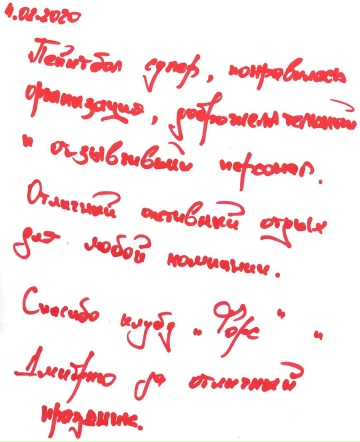 4.01.2020
Пейнтбол супер, понравилась
организация, доброжелательный
и отзывчивый персонал.
Отличный активный отдых
для любой компании.
Спасибо клубу „Форс“ „
Дмитрию за отличный
праздник.